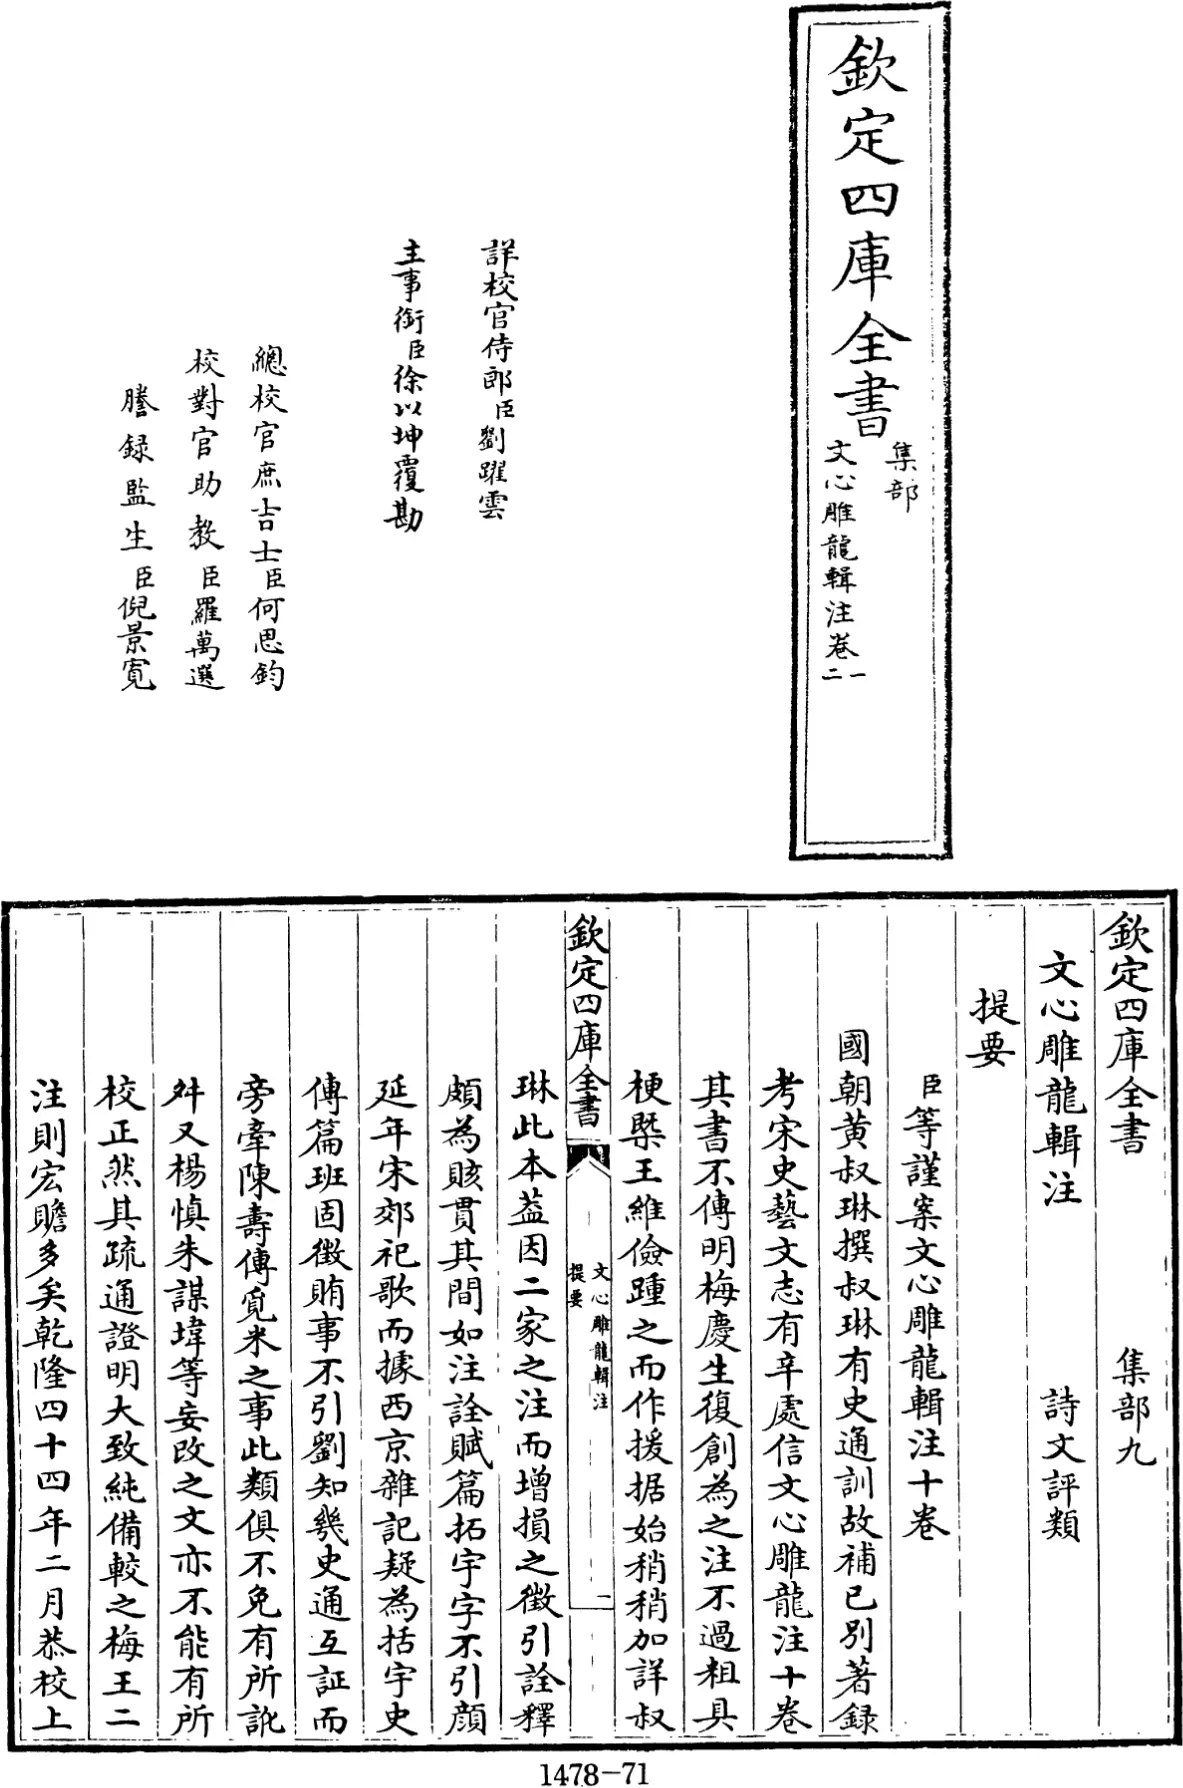 欽定四庫全書
集部
文心雕龍輯注卷一
二
詳校官侍郎臣劉躍雲
主事銜臣徐以坤覆勘
總校官庶吉士臣何思鈞
校對官助教臣羅萬選
謄録監生臣倪景寬
欽定四庫全書 集部九
文心雕龍輯注 詩文評類
提要
臣等謹案文心雕龍輯注十卷
國朝黄叔琳撰叔琳有史通訓故補已别著録
考宋史藝文志有辛處信文心雕龍注十卷
其書不傳明梅慶生復創為之注不過粗具
梗槩王維儉踵之而作援据始稍稍加詳叔
欽定四庫全書
文心雕龍輯注
提要
一
琳此本葢因二家之注而增損之徵引詮釋
頗為賅貫其間如注詮賦篇拓宇字不引顔
延年宋郊祀歌而據西京雜記疑為括宇史
傳篇班固徵賄事不引劉知幾史通互証而
旁牽陳壽傳覓米之事此類俱不免有所訛
舛又楊慎朱謀㙔等妄改之文亦不能有所
校正然其疏通證明大致純備較之梅王二
注則宏贍多矣乾隆四十四年二月恭校上
1478-71